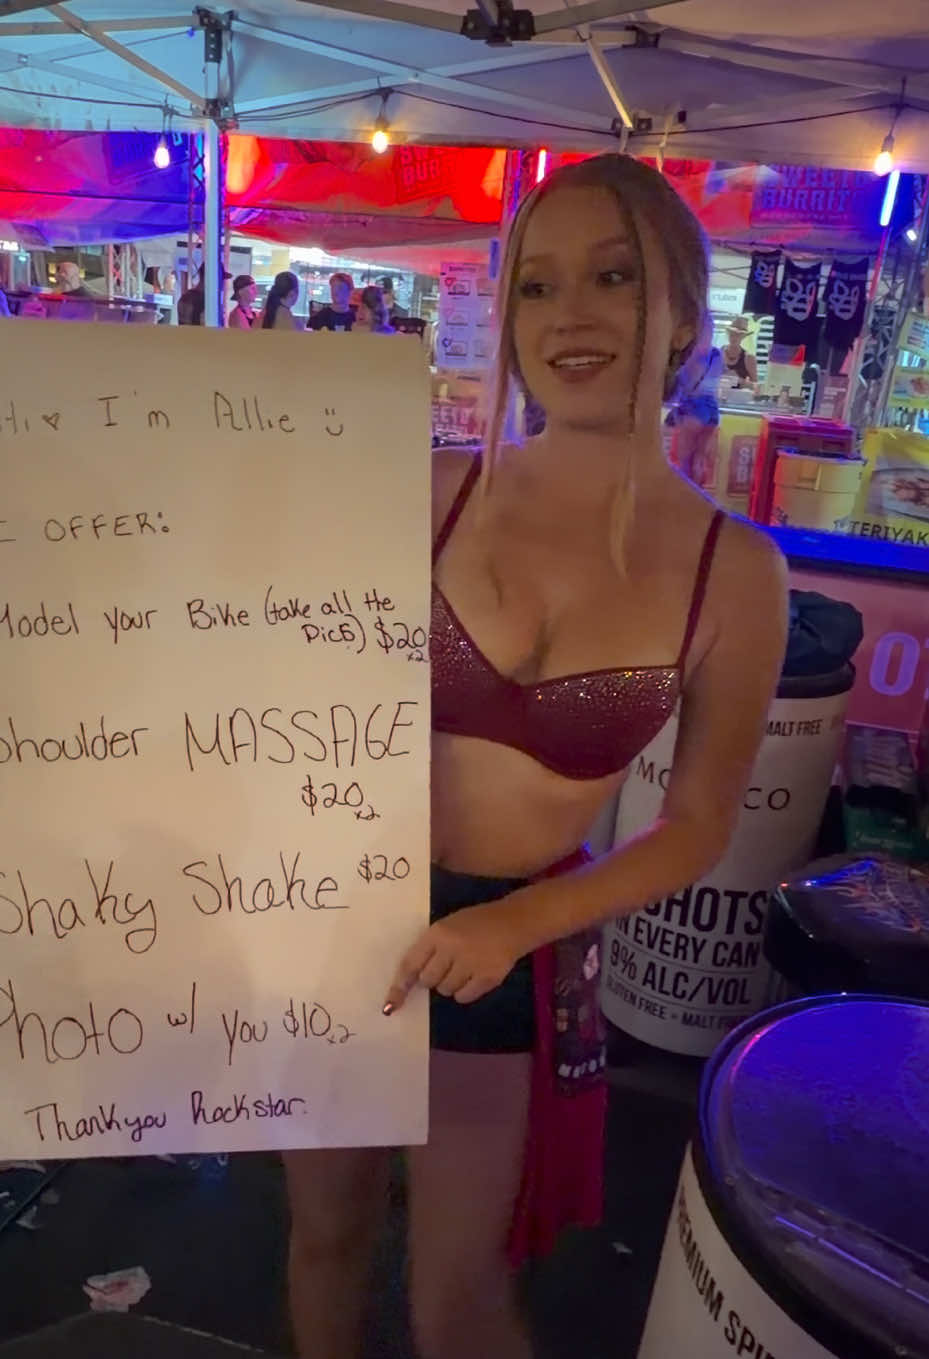 Hi ♥ I'm Allie :)
I OFFER:
Model your Bike (take all the
Pics) $20
x2
Shoulder MASSAGE
$20
x2
Shaky Shake $20
Photo w/ you $10
x2
Thankyou Rockstar.
BURRITO
TERIYAK
MALT FREE
MO CO
SHOTS
IN EVERY CAN
9% ALC/VOL
GLUTEN FREE • MALT FREE
PREMIUM SPI